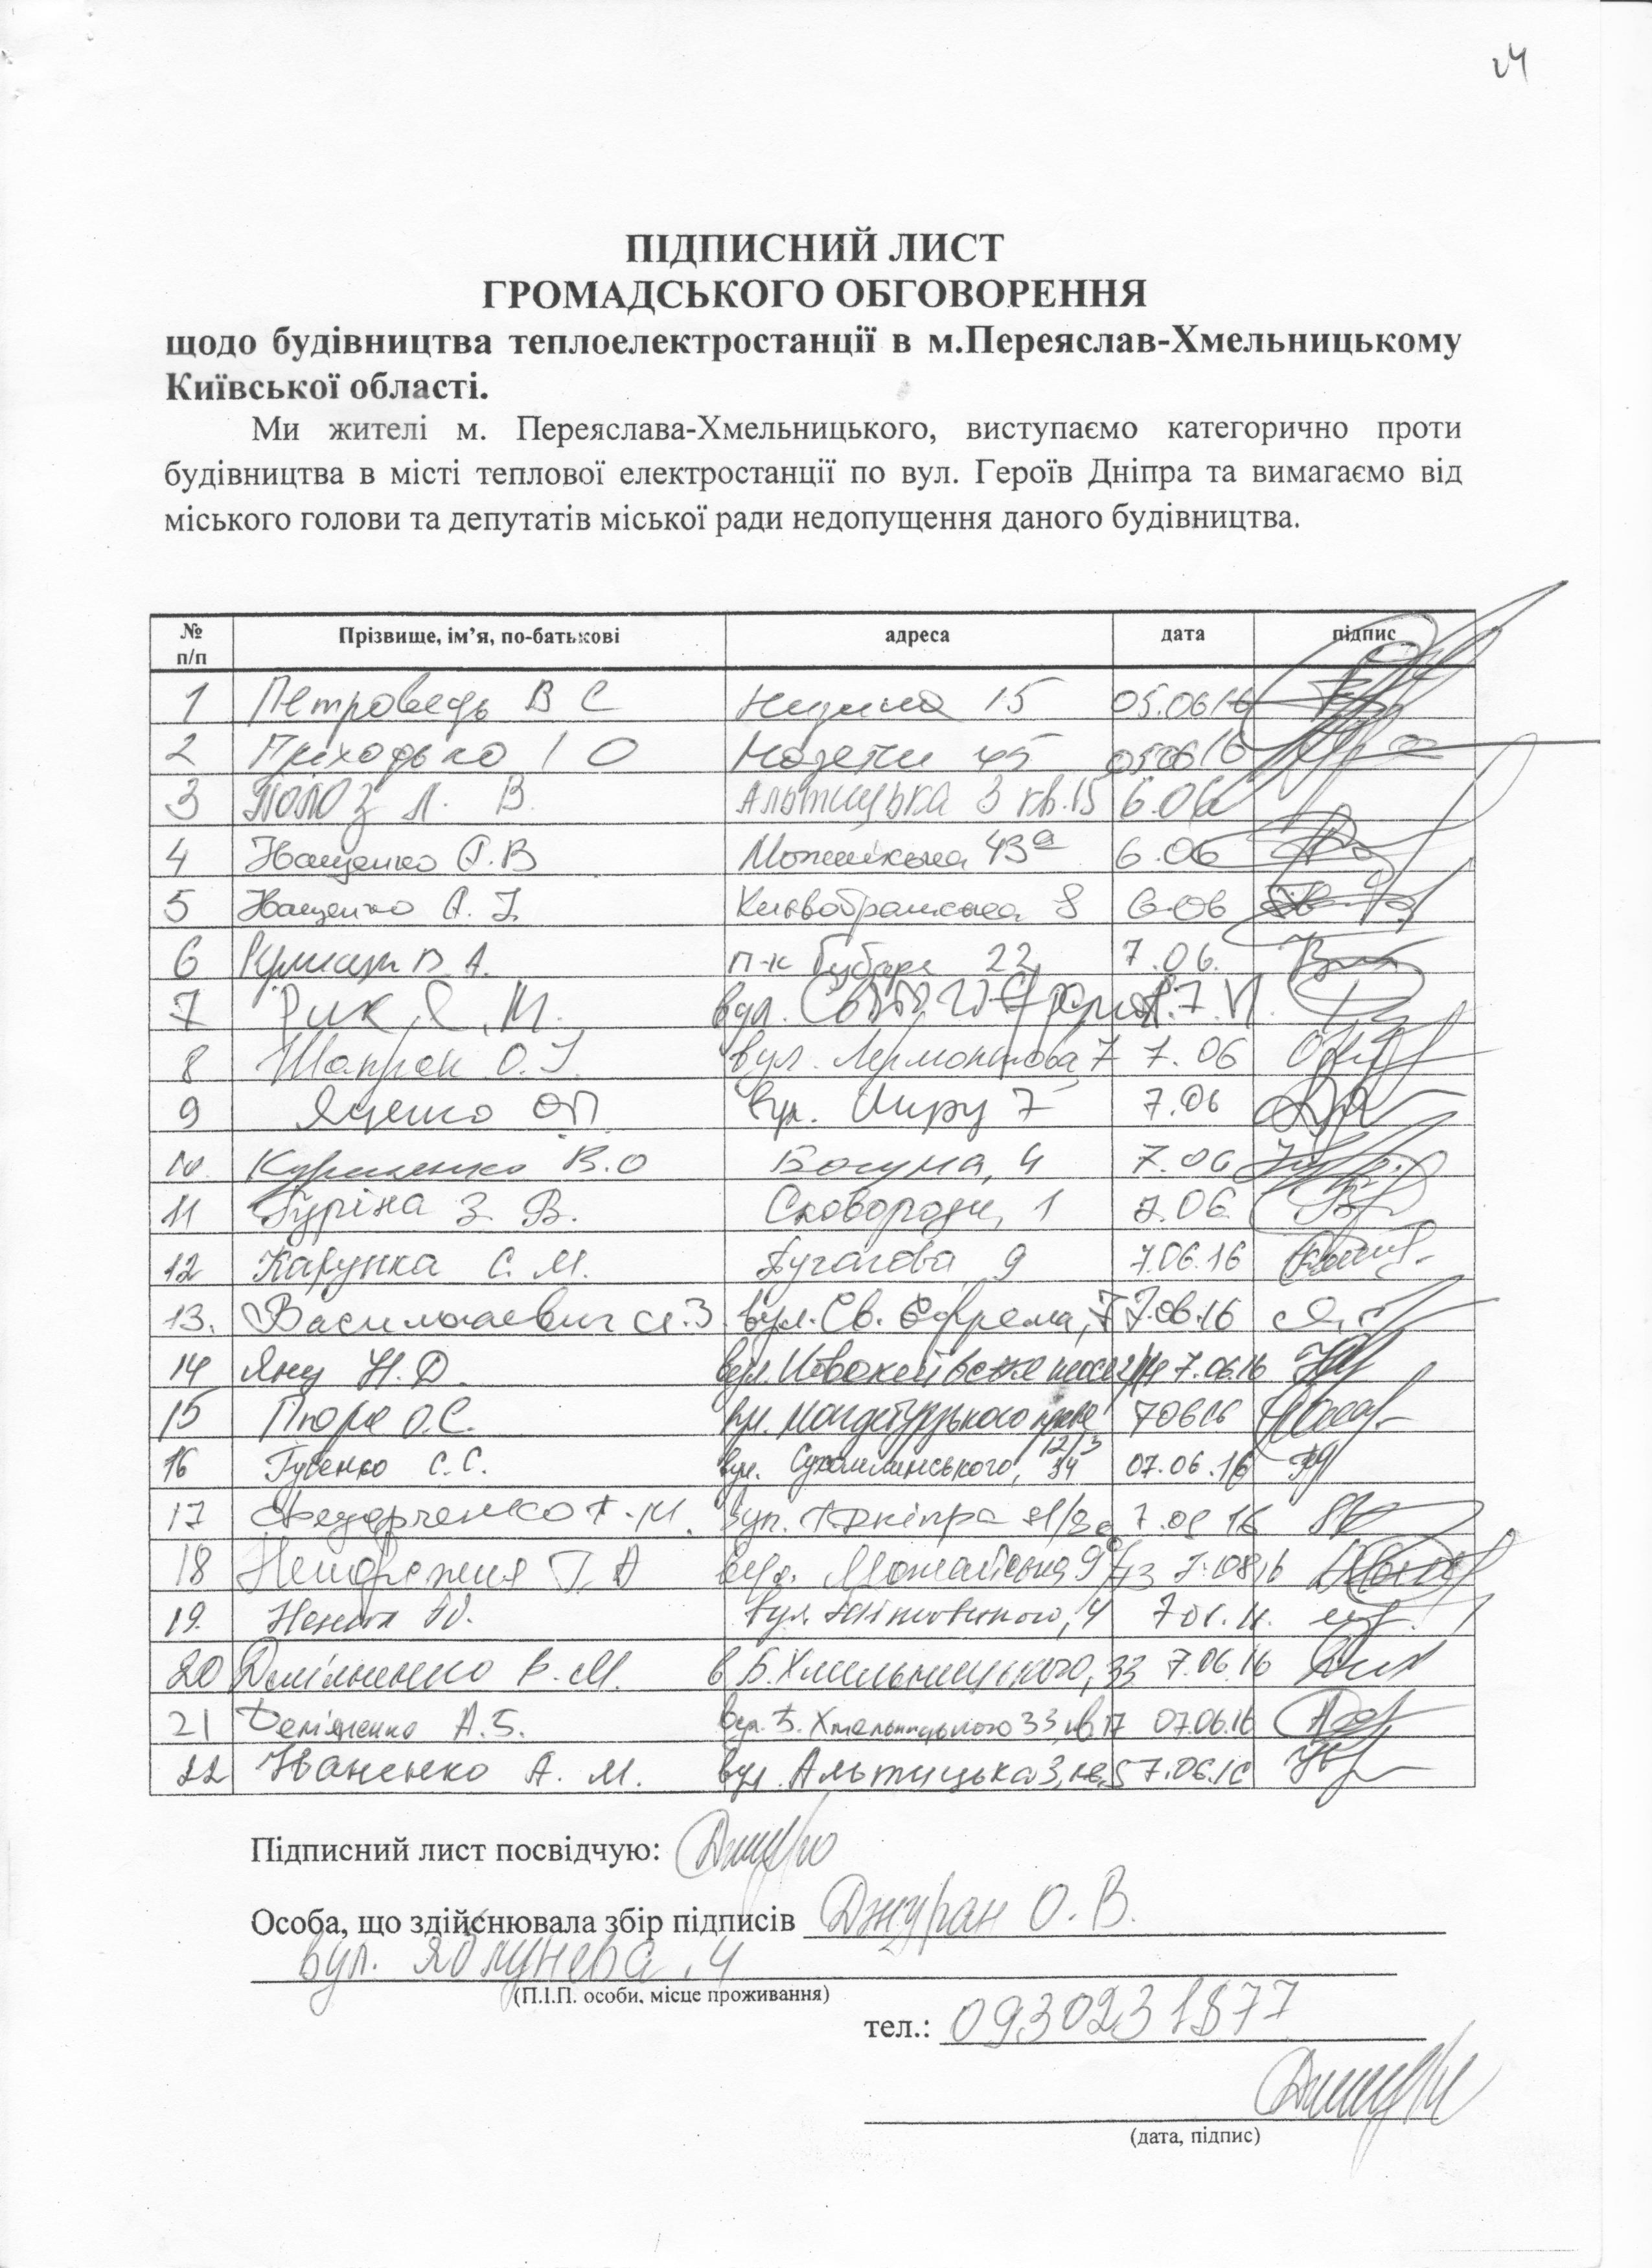 24
ПІДПИСНИЙ ЛИСТ
ГРОМАДСЬКОГО ОБГОВОРЕННЯ
щодо будівництва теплоелектростанції в м.Переяслав-Хмельницькому
Київської області.
Ми жителі м. Переяслава-Хмельницького, виступаємо категорично проти
будівництва в місті теплової електростанції по вул. Героїв Дніпра та вимагаємо від
міського голови та депутатів міської ради недопущення даного будівництва.
№ п/п Прізвище, ім’я, по-батькові адреса дата підпис
1 Петроведь В С 15 05.06 16
2 Приходько І О 45 05 06 16
3 Полоз Л. В. Альтицька 3 кв.15 6.06
4 Іващенко О.В Можайська 43а 6.06
5 Іващенко А. І. Києвобрамська 8 6.06
6 В.А. 22 7.06.
7 Рик Я. М. вул.
8 Шапран О.І. вул. Лермонтова, 7 7.06
9 Яценко О.П. вул. Миру 7 7.06
10. Куриленко В.О Богуна, 4 7.06
11 Гуріна З. В. Сковороди, 1 7.06
12 Карупка С. М. Пугачова 9 7.06.16
13. Васильаевич Я.З. вул. Св. Єфрема, 7 7.06.16
14 Яну Н.Д. вул. Новокиївське шосе 7.06.16
15 Пюра О.С. вул. Магдебурзького права 12/3 7 06 16
16 Гусенко С.С. вул. Сухомлинського, 34 07.06.16
17 Федорченко Т.М. вул. Г Дніпра 7.06 16
18 Т. А вул. Можайська
19. вул. 4
20 Дем'яненко В.М. в Б.Хмельницького, 33 7.06.16
21 Дем'яненко А.Б. вул. Б. Хмельницького 33, кв 17 07.06.16
22 Іваненко А. М. вул. Альтицька 3, кв.5 7.06.16
Підписний лист посвідчую:
Особа, що здійснювала збір підписів Джуран О. В.
вул. Яблунева, 4
(П.І.П. особи, місце проживання)
тел.: 0930231877
(дата, підпис)